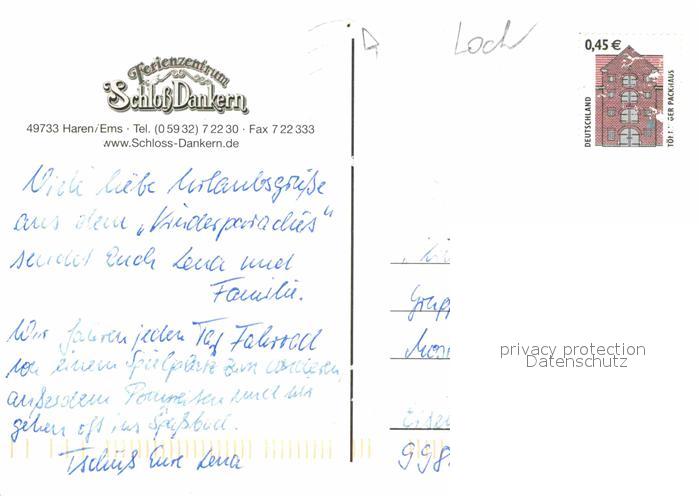 Ferienzentrum
Schloß Dankern
49733 Haren/Ems · Tel. (0 59 32) 7 22 30 · Fax 7 22 333
www.Schloss-Dankern.de
Loch
0,45 €
DEUTSCHLAND
TÖ GER PACKHAUS
Viele liebe Urlaubsgrüße
aus dem „Kinderparadies"
sendet Euch Lena und
Familie.
Wir fahren jeden Tag Fahrrad
von einem Spielplatz zum anderen,
außerdem Ponyreiten und wir
gehen oft ins Spaßbad.
Tschüß Eure Lena
998
privacy protection
Datenschutz